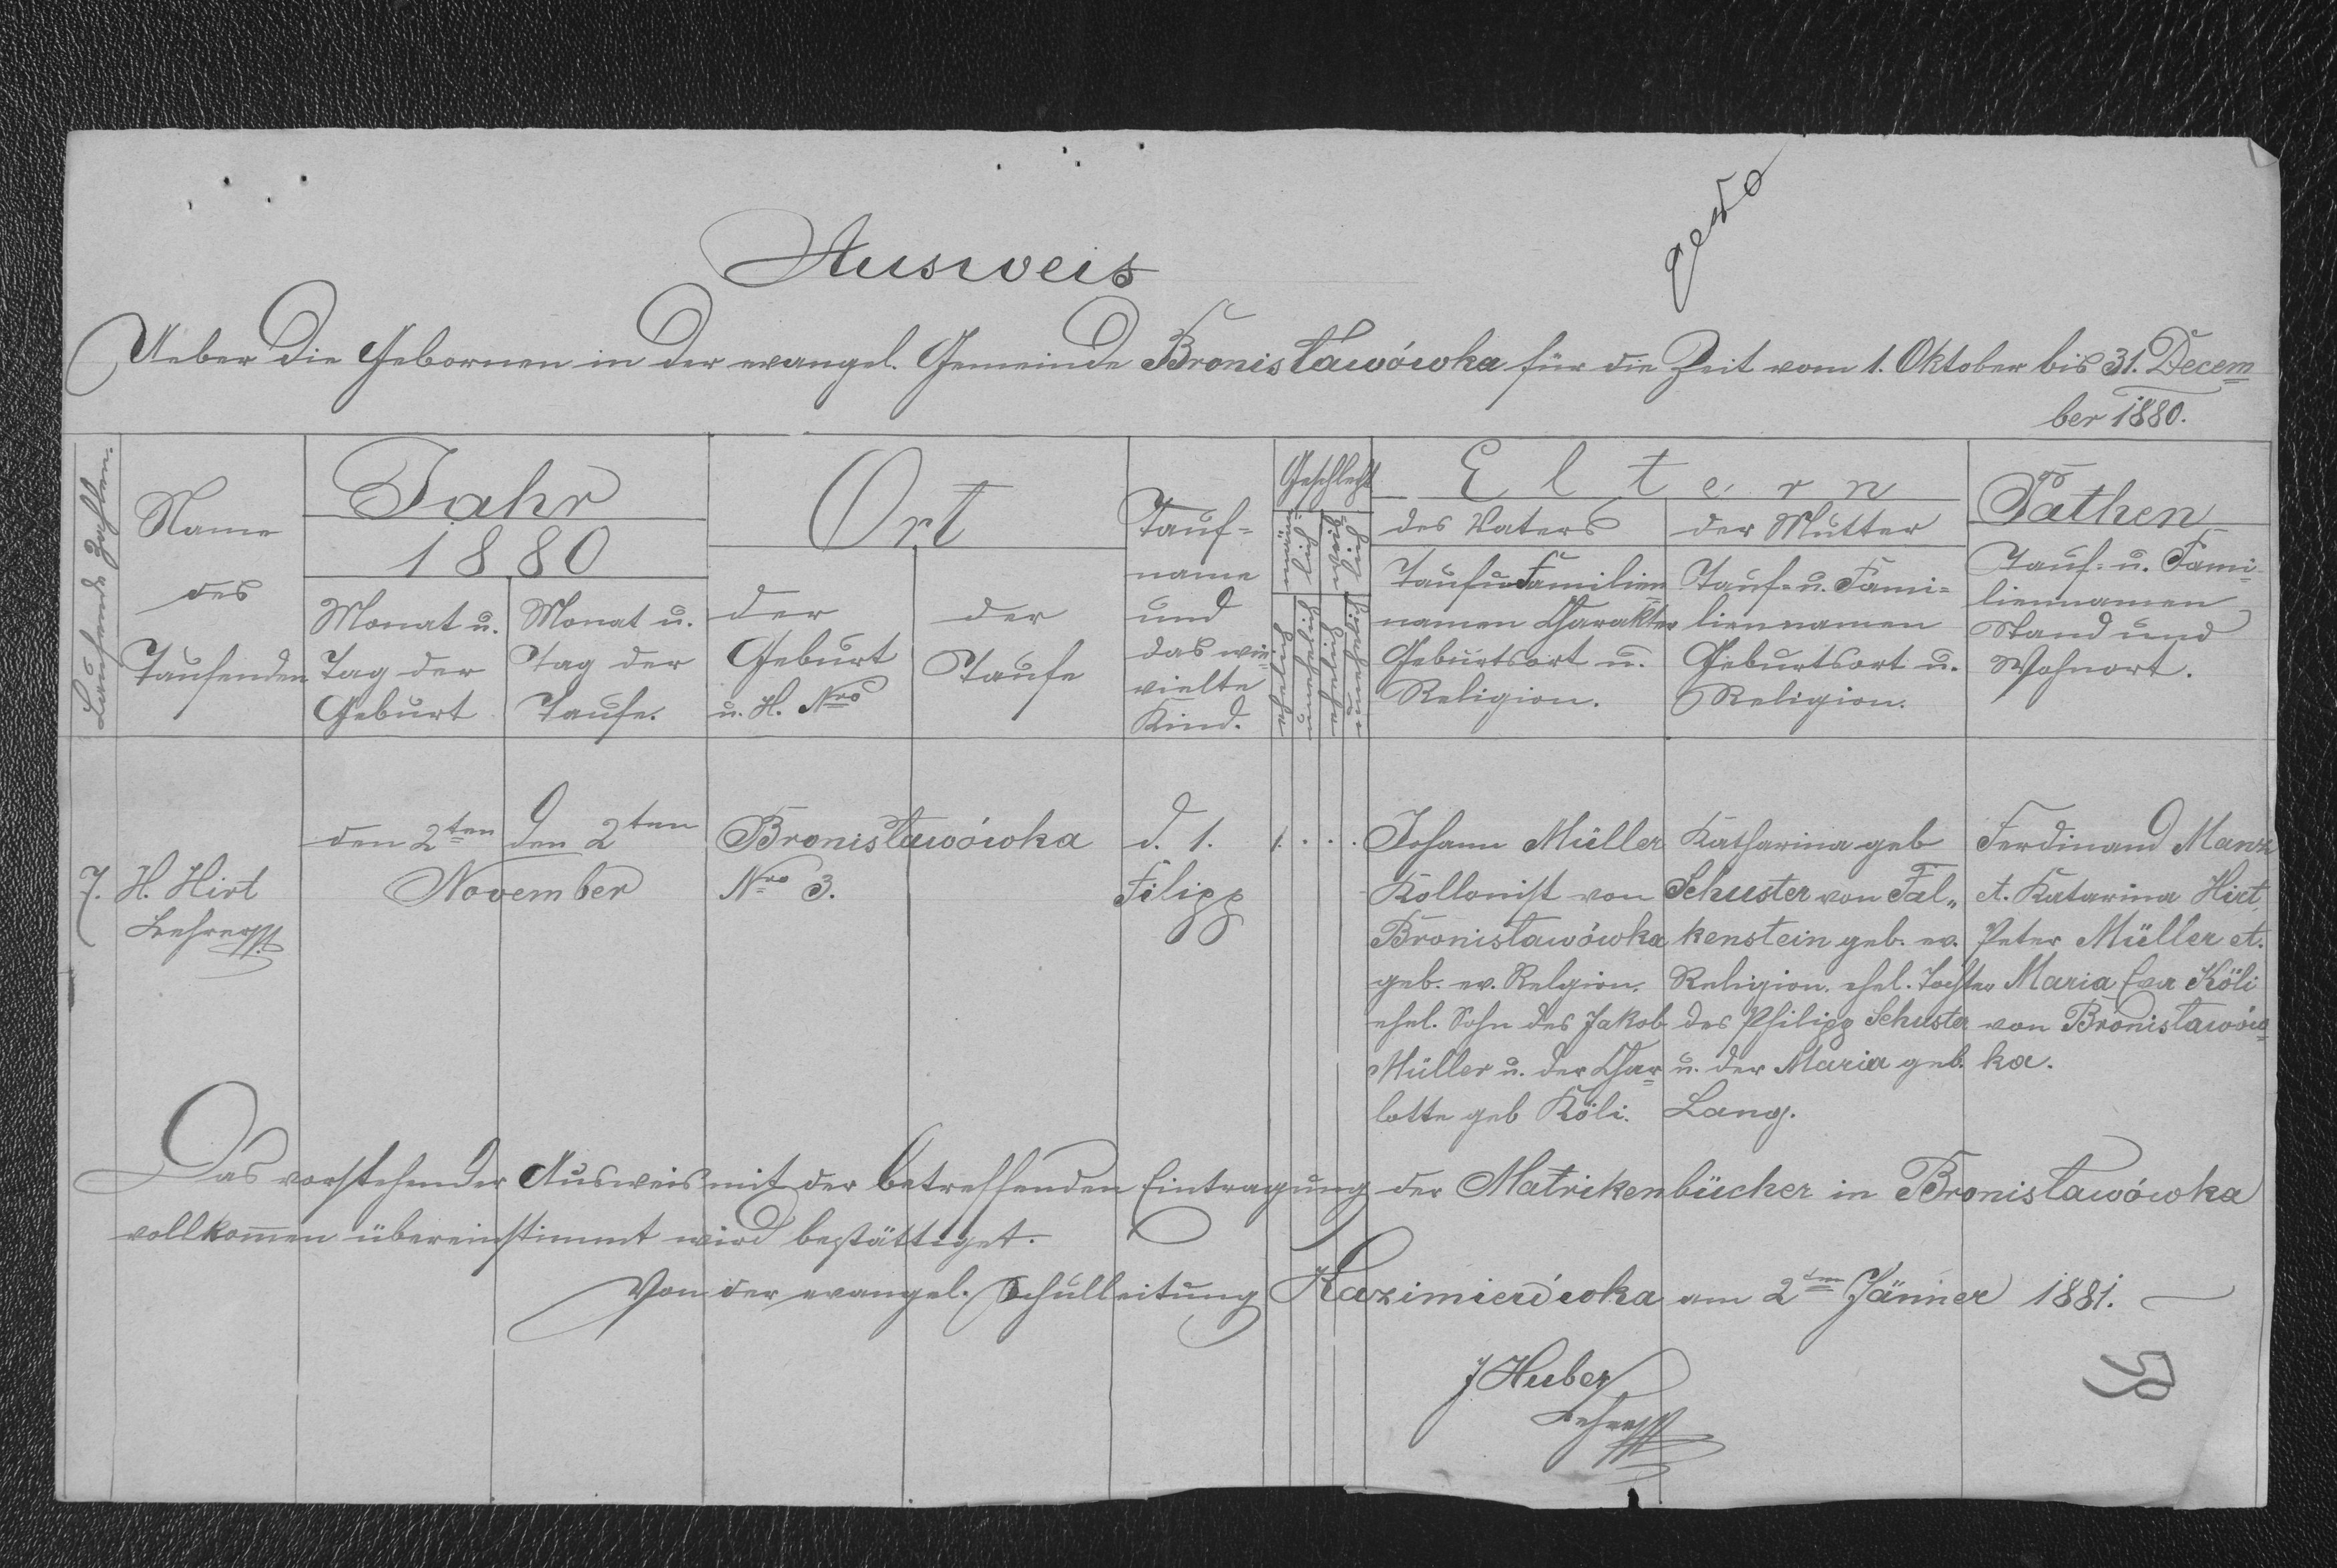 Ausweis
Ueber die Gebornen in der evangel. Gemeinde Bronisławówka für die Zeit vom 1. Oktober bis 31. Decem=
ber 1880.
Laufende Zahlen.
Name
des
Taufenden
Jahr
1880
Monat u.
Tag der
Geburt
Monat u.
Tag der
Taufe.
Ort
der
Geburt
u. H. Nro
der
Taufe
Tauf=
name
und
das wie=
vielte
Kind.
Geschlecht
männ=
lich
weib=
lich
Eltern
des Vaters
Tauf u Familien=
namen Charakter
Geburtsort u.
Religion.
der Mutter
Tauf= u. Fami=
liennamen
Geburtsort u.
Religion.
Pathen
Tauf= u. Fami=
liennamen
Stand und
Wohnort.
7.
H. Hirt
Lehrer
den 2ten
den 2ten
November
Bronisławówka
Nro 3.
d. 1.
Filipp
1. . . .
Johann Müller
Kollonist von
Bronisławówka
geb. ev. Relgion.
ehel. Sohn des Jakob
Müller u. der Char=
lotte geb Köli.
Katharina geb
Schuster von Fal„
kenstein geb. ev.
Religion. ehel. Tochter
des Philipp Schuster
u. der Maria geb.
Lang.
Ferdinand Manz
et. Katarina Hirt,
Peter Müller et.
Maria Eva Köli
von Bronisławów=
ka.
Das vorstehender Ausweis mit der betreffenden Eintragung der Matrikenbücher in Bronisławówka
vollkom̄en übereinstimmt wird bestättiget.
Von der evangel. Schulleitung Kazimierówka am 2ten Jänner 1881.
J Huber
Lehrer